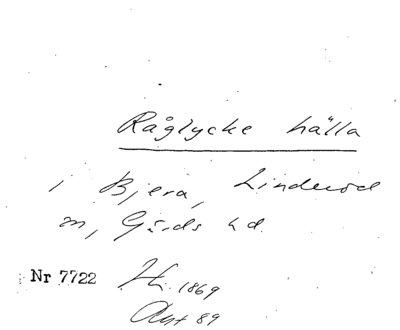 Råglycke hälla
i Bjera, Linderöd
m, Gärds hd.
Nr 7722 1869
89